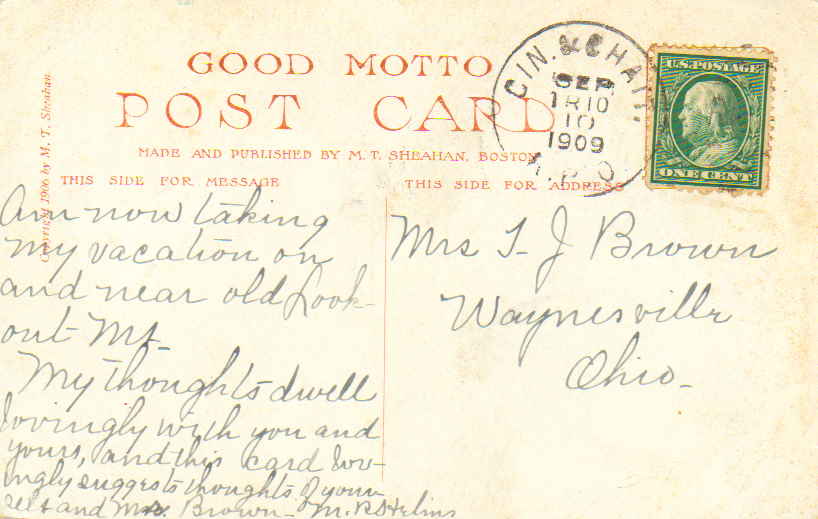 GOOD MOTTO
POST CARD
MADE AND PUBLISHED BY M. T. SHEAHAN, BOSTON
THIS SIDE FOR MESSAGE
THIS SIDE FOR ADDRESS
Copyright 1906 by M. T. Sheahan
CIN. & CHAT.
SEP
TR 10
10
1909
R.P.O
U.S. POSTAGE
ONE CENT
Am now taking
my vacation on
and near old Look-
out Mt.
My thoughts dwell
lovingly with you and
yours, and this card lov-
ingly suggests thoughts of your
self and Mr. Brown- M. R.
Mrs. T. J. Brown
Waynesville
Ohio.